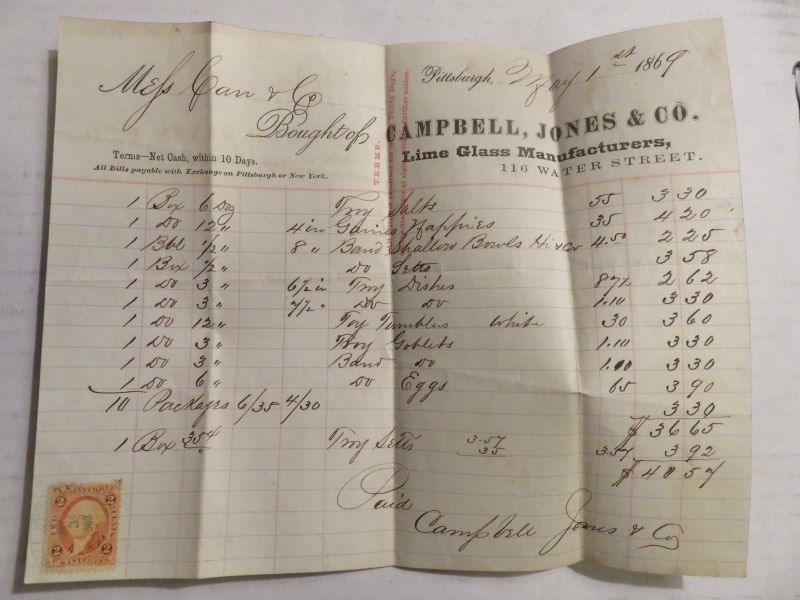 Pittsburgh, May 1st 1869
Mess Carr & Co
Bought of CAMPBELL, JONES & CO.
Lime Glass Manufacturers,
116 WATER STREET.
Terms—Net Cash, within 10 Days.
All Bills payable with Exchange on Pittsburgh or New York.
TERMS.
1 Box 6 Doz Troy Salts 55 3 30
1 Do 12 " 4 in Nappies 35 4 20
1 Bbl 1/2 " 8 " Band Shallow Bowls 4.50 2 25
1 Box 1/2 " Do Setts 3 58
1 Do 3 " 6 1/2 in Troy Dishes 87 1/2 2 62
1 Do 3 " 7 1/2 " Do Do 1.10 3 30
1 Do 12 " Toy Tumblers White 30 3 60
1 Do 3 " Troy Goblets 1.10 3 30
1 Do 3 " Band Do 1.10 3 30
1 Do 6 " Do Eggs 65 3 90
10 Packages 6/35 4/30 3 30
$ 36 65
1 Box Troy Setts 3.57 35 3.57 3 92
$ 40 57
Paid
Campbell Jones & Co
2 2